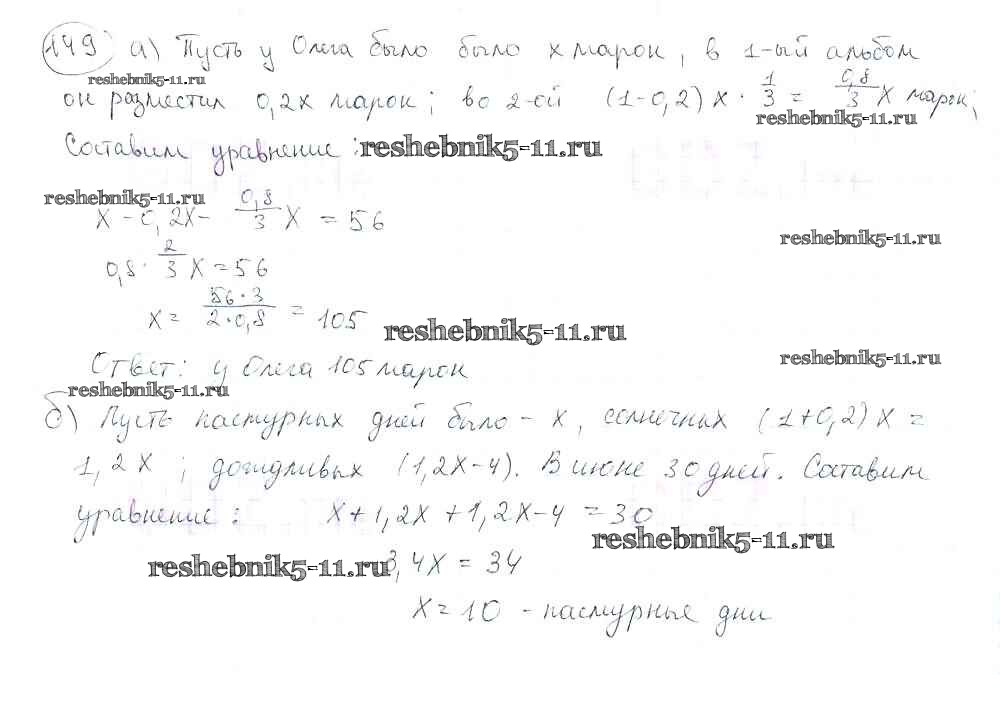 149 а) Пусть у Олега было было x марок, в 1-ый альбом
reshebnik5-11.ru
он разместил 0,2x марок; во 2-ой (1-0,2)x · 1/3 = 0,8/3 x марок;
reshebnik5-11.ru
Составим уравнение: reshebnik5-11.ru
reshebnik5-11.ru
x - 0,2x - 0,8/3 x = 56
reshebnik5-11.ru
0,8 · 2/3 x = 56
x = 56·3/2·0,8 = 105
reshebnik5-11.ru
Ответ: у Олега 105 марок
reshebnik5-11.ru
reshebnik5-11.ru
б) Пусть пасмурных дней было - x, солнечных (1+0,2)x =
1,2x; дождливых (1,2x-4). В июне 30 дней. Составим
уравнение: x+1,2x+1,2x-4 = 30
reshebnik5-11.ru
reshebnik5-11.ru 3,4x = 34
x = 10 - пасмурные дни